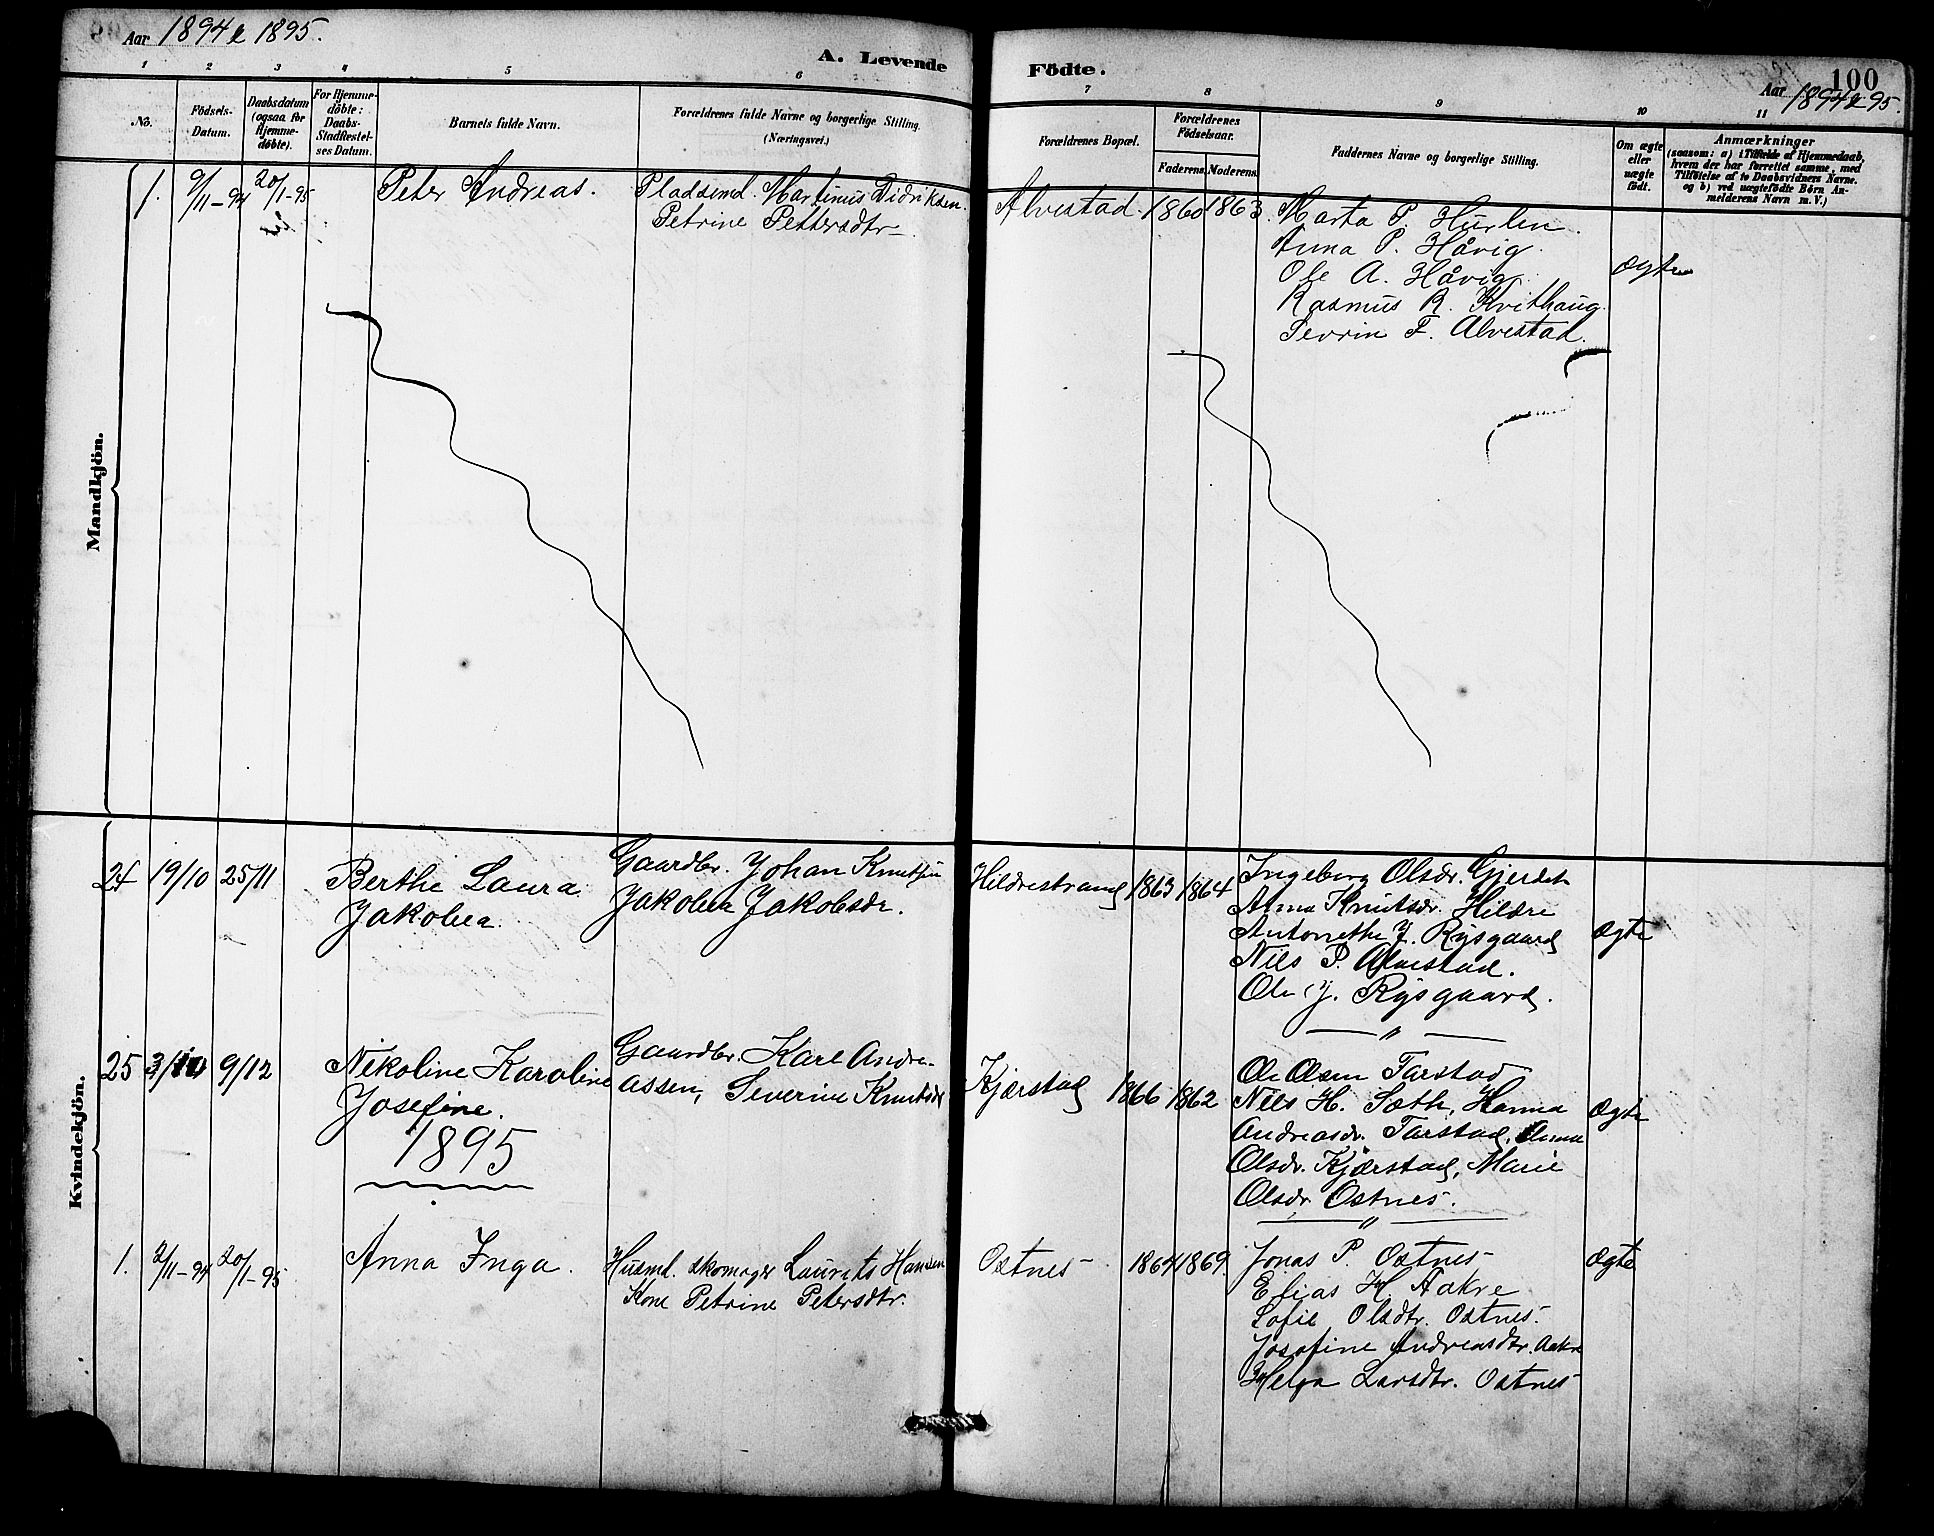 Aar 1894 & 1895.
A. Levende
Födte.
100
Aar 1894 & 95.
1 2 3 4 5 6
7 8 9 10 11
No.
Födsels-
Datum.
Daabsdatum
(ogsaa for
Hjemme-
döbte).
For Hjemme-
döbte:
Daabs-
Stadfæstel-
ses Datum.
Barnets fulde Navn.
Forældrenes fulde Navne og borgerlige Stilling.
(Næringsvei.)
Forældrenes Bopæl.
Forældrenes
Födselsaar.
Faderens. Moderens.
Faddernes Navne og borgerlige Stilling.
Om ægte
eller
uægte
födt.
Anmærkninger
(saasom: a) i Tilfælde af Hjemmedaab,
hvem der har forrettet samme, med
Tilföielse af to Daabsvidners Navne.
og b) ved uægtefödte Börn An-
melderens Navn m. V.)
Mandkjön.
1. 9/11-94 20/1-95 Peter Andreas. Pladsemd. Martinus Didriksen.
Petrine Pettersdtr
Alvestad 1860 1863. Marta P. Hurlen.
Anna P. Håvig.
Ole A. Håvig. ægte
Rasmus R. Kvithaug.
Sevrin F. Alvestad.
Kvindekjön.
24 19/10 25/11 Berthe Laura Gaardbr. Johan Knutsen
Jakobea. Jakobea Jakobsdr.
Hildrestrand 1863 1864 Ingeborg Olsdr. Gjerdet
Anna Knutsdr. Hildre
Antonethe J. Rysgaard ægte
Nils P. Alvestad.
Ole J. Rysgaard.
"
25 3/10 9/12 Nikoline Karoline Gaardbr. Karl Andre-
Josefine. assen, Severine Knutsdr
Kjærstad 1866 1862 Ole Olsen Tarstad
Nils H. Sæth, Hanna ægte
Andreasdr. Tarstad, Anna
Olsdr. Kjærstad, Marie
Olsdr Ostnes.
"
1895
1. 2/11-94 20/1-95 Anna Inga. Husmd. skomager Laurits Hansen
Kone Petrine Petersdtr.
Ostnes 1864 1869. Jonas P. Ostnes ægte
Elias H. Aakre
Sofie Olsdtr. Ostnes.
Josefine Andreasdtr. Aakre
Helga Larsdtr. Ostnes